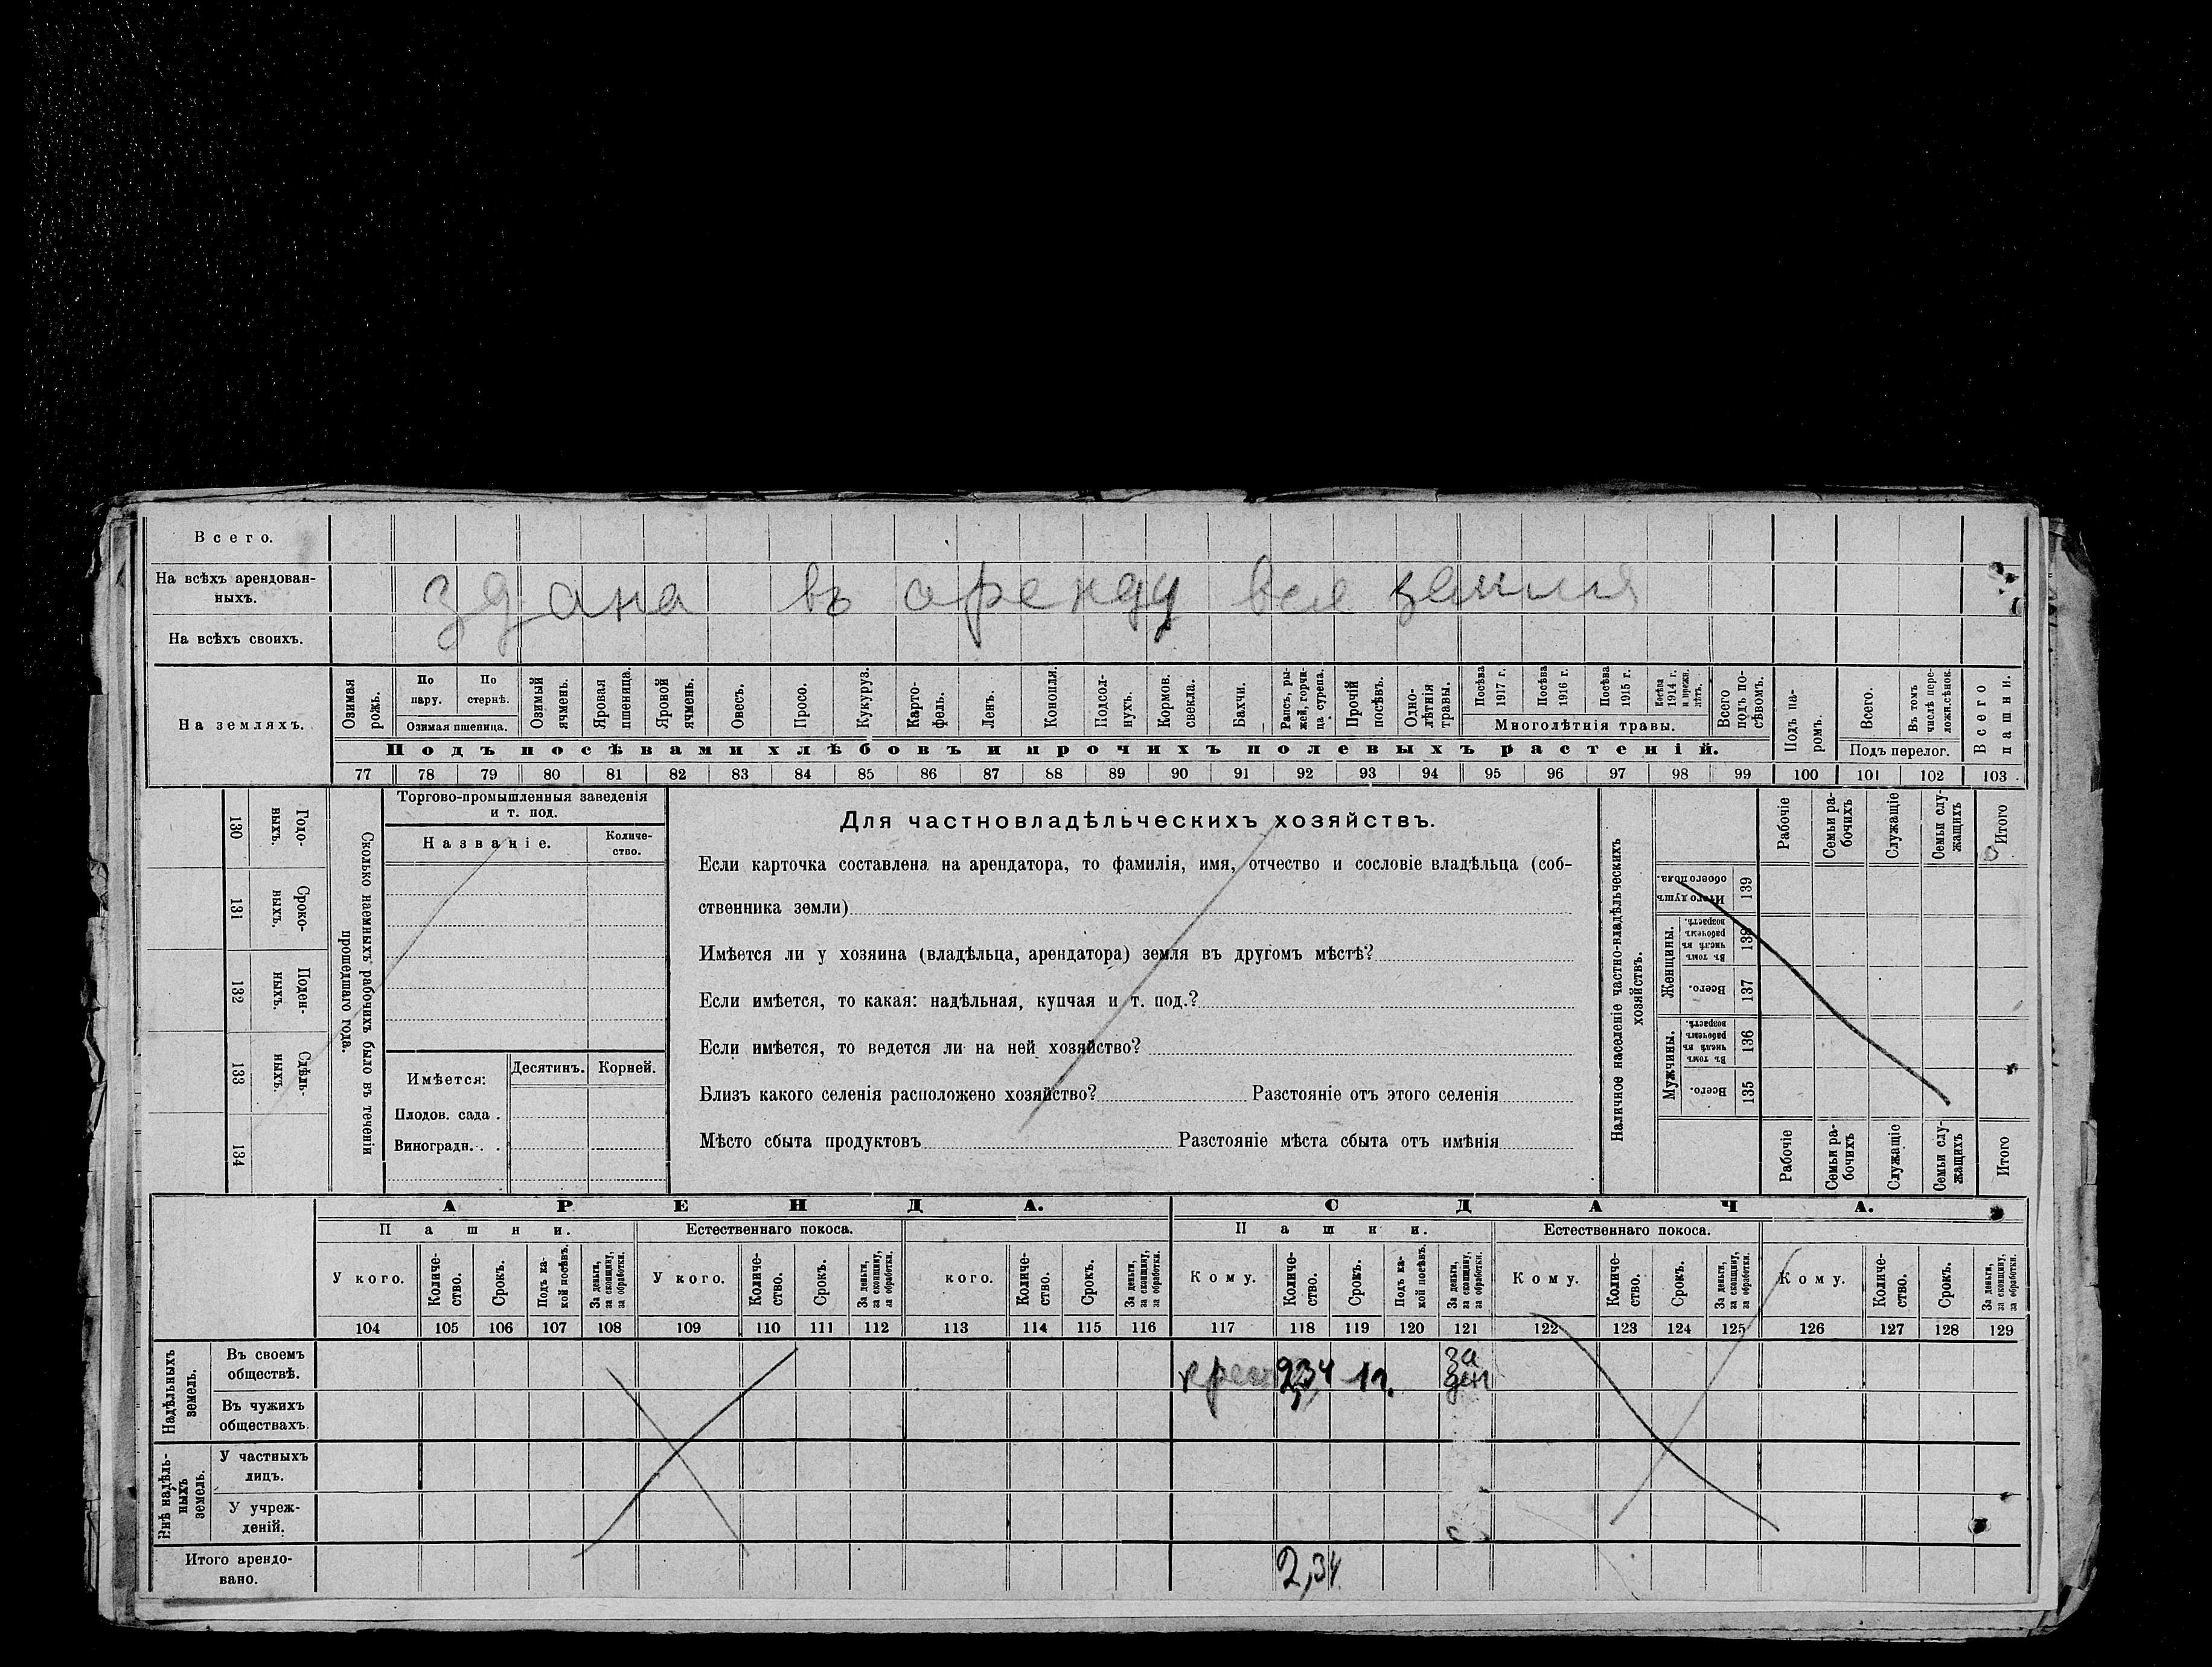 Всего.
На всѣхъ арендован-
ныхъ.
здана въ аренду вся земля
На всѣхъ своихъ.
На земляхъ.
Озимая рожь.
По пару.
По стернѣ.
Озимая пшеница.
Озимый ячмень.
Яровая пшеница.
Яровой ячмень.
Овесъ.
Просо.
Кукуруз.
Карто-
фель.
Ленъ.
Конопля.
Подсол-
нухъ.
Кормов.
свекла.
Бахчи.
Рапсъ, ры-
жей, горчи-
ца сурепа.
Прочій
посѣвъ.
Одно-
лѣтнія
травы.
Посѣва
1917 г.
Посѣва
1916 г.
Посѣва
1915 г.
Посѣва
1914 г.
и прежн.
лѣтъ.
Многолѣтнія травы.
Всего
подъ по-
сѣвомъ.
Подъ па-
ромъ.
Всего.
Въ томъ
числѣ пере-
ложн.сѣнок.
Подъ перелог.
Всего
пашни.
Подъ посѣвами хлѣбовъ и прочихъ полевыхъ растеній.
77 78 79 80 81 82 83 84 85 86 87 88 89 90 91 92 93 94 95 96 97 98 99 100 101 102 103
130
Годо-
ныхъ.
131
Сроко-
ныхъ.
132
Поден-
ныхъ.
133
Сдѣль-
ныхъ.
134
Сколько наемныхъ рабочихъ было въ теченіи
прошедшаго года.
Торгово-промышленныя заведенія
и т. под.
Названіе.
Количе-
ство.
Имѣется:
Десятинъ.
Корней.
Плодов. сада .
Виноградн. . .
Для частновладѣльческихъ хозяйствъ.
Если карточка составлена на арендатора, то фамилія, имя, отчество и сословіе владѣльца (соб-
ственника земли)
Имѣется ли у хозяина (владѣльца, арендатора) земля въ другомъ мѣстѣ?
Если имѣется, то какая: надѣльная, купчая и т. под.?
Если имѣется, то ведется ли на ней хозяйство?
Близъ какого селенія расположено хозяйство? Разстояніе отъ этого селенія
Мѣсто сбыта продуктовъ Разстояніе мѣста сбыта отъ имѣнія
Наличное населеніе частно-владѣльческихъ
хозяйствъ.
Рабочіе
Семьи ра-
бочихъ
Служащіе
Семьи слу-
жащихъ
Итого
Итого душъ
обоего пола.
139
Женщины.
Въ томъ
числѣ въ
рабочемъ
возрастѣ.
138
Всего.
137
Мужчины.
Въ томъ
числѣ въ
рабочемъ
возрастѣ.
136
Всего.
135
Рабочіе
Семьи ра-
бочихъ
Служащіе
Семьи слу-
жащихъ
Итого
АРЕНДА.
СДАЧА.
Пашни.
Естественнаго покоса.
Пашни.
Естественнаго покоса.
У кого.
Количе-
ство.
Срокъ.
Подъ ка-
кой посѣвъ.
За деньги,
за скопщину,
за обработки.
У кого.
Количе-
ство.
Срокъ.
За деньги,
за скопщину,
за обработки.
кого.
Количе-
ство.
Срокъ.
За деньги,
за скопщину,
за обработки.
Кому.
Количе-
ство.
Срокъ.
Подъ ка-
кой посѣвъ.
За деньги,
за скопщину,
за обработки.
Кому.
Количе-
ство.
Срокъ.
За деньги,
за скопщину,
за обработки.
Кому.
Количе-
ство.
Срокъ.
За деньги,
за скопщину,
за обработки.
104 105 106 107 108 109 110 111 112 113 114 115 116 117 118 119 120 121 122 123 124 125 126 127 128 129
Надѣльныхъ
земель.
Въ своемъ
обществѣ.
2,34 1г. за
ден
Въ чужихъ
обществахъ.
Внѣ надѣль-
ныхъ
земель.
У частныхъ
лицъ.
У учреж-
деній.
Итого арендо-
вано.
2,34